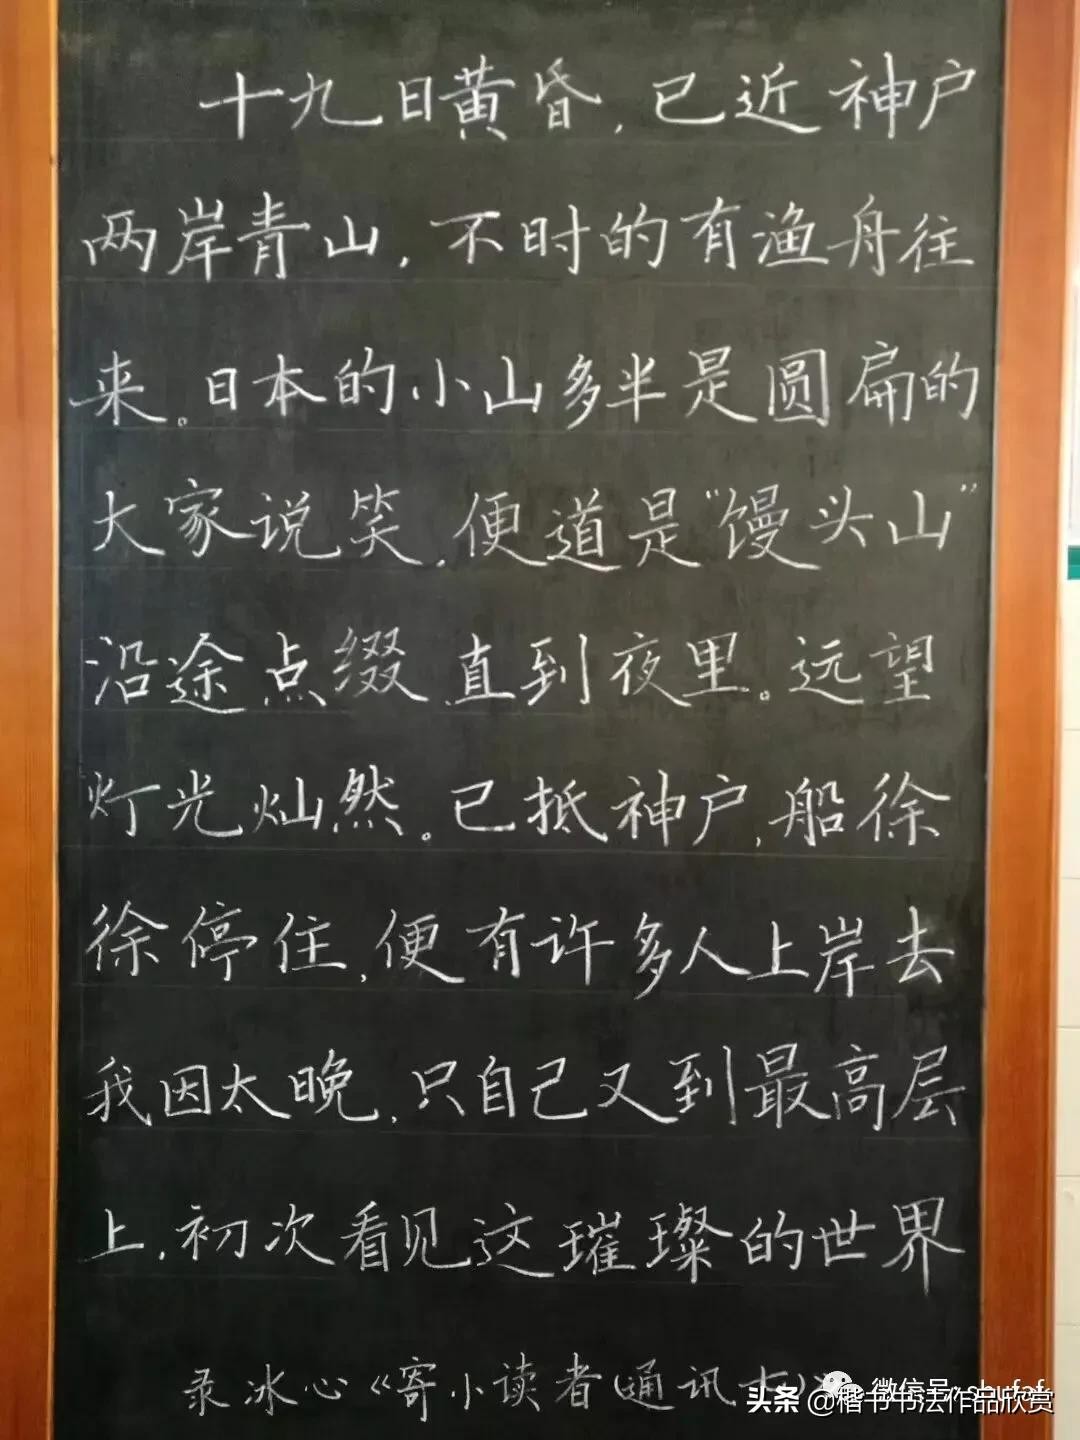 十九日黄昏，已近神户
两岸青山，不时的有渔舟往
来。日本的小山多半是圆扁的
大家说笑，便道是“馒头山”
沿途点缀，直到夜里。远望
灯光灿然。已抵神户，船徐
徐停住，便有许多人上岸去
我因太晚，只自己又到最高层
上，初次看见这璀璨的世界
录冰心《寄小读者(通讯
微信号:
头条@楷书书法作品欣赏